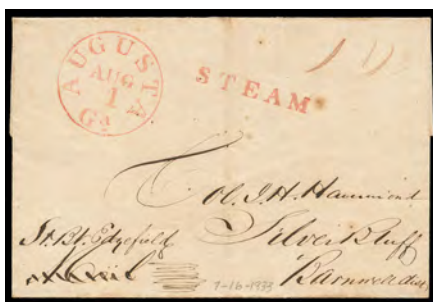 AUGUSTA
AUG
1
Ga
STEAM
10
Col. J. H. Hammond
Silver Bluff
Barnwell dist
St. Bt. Edgefield
7-16-1933